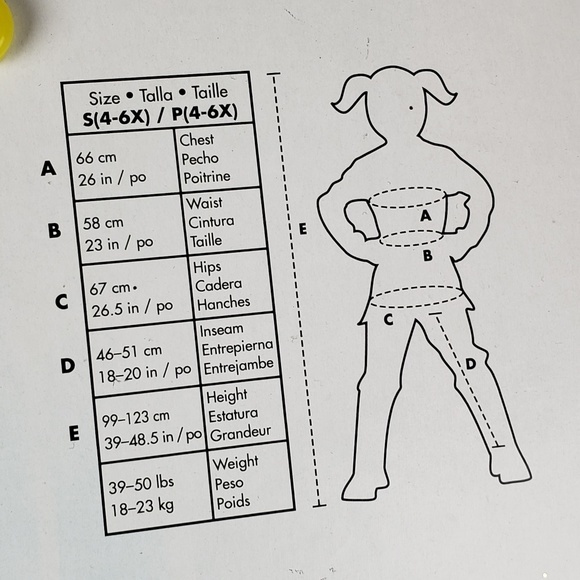 Size • Talla • Taille
S(4-6X) / P(4-6X)
A
66 cm
26 in / po
Chest
Pecho
Poitrine
B
58 cm
23 in / po
Waist
Cintura
Taille
C
67 cm
26.5 in / po
Hips
Cadera
Hanches
D
46–51 cm
18–20 in / po
Inseam
Entrepierna
Entrejambe
E
99–123 cm
39–48.5 in / po
Height
Estatura
Grandeur
39–50 lbs
18–23 kg
Weight
Peso
Poids
E
A
B
C
D